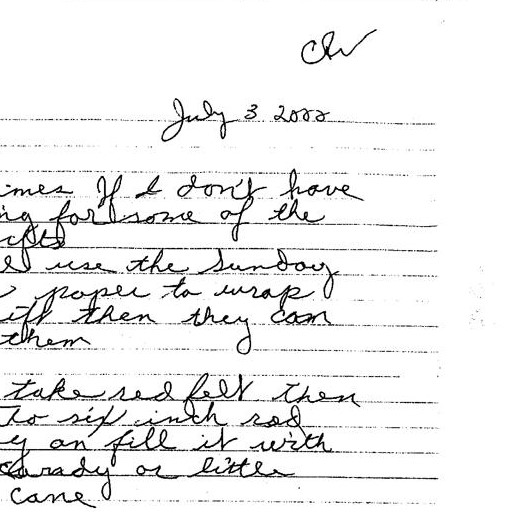 July 3 2002
imes If I don't have
ng for some of the
ifts
I use the Sunday
paper to wrap
ift then they can
them
take red felt then
to six inch rod
y an fill it with
candy or little
cane